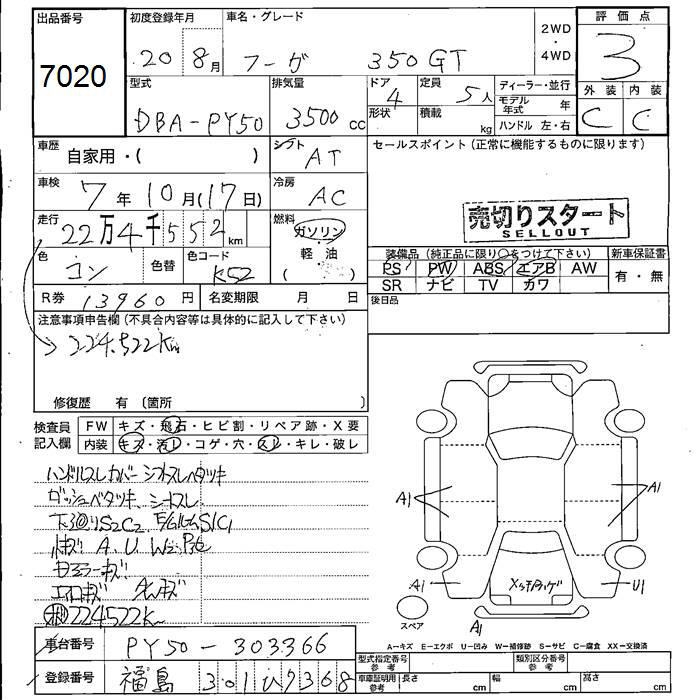 出品番号 初度登録年月 車名・グレード 2WD ・ 4WD 評価点
7020 20 8月 フーガ 350GT 3
型式 排気量 ドア 4 形状 定員 5人 積載 kg ディーラー・並行 モデル年式 年 ハンドル 左・右 外装 内装
DBA-PY50 3500cc C C
車歴 自家用・( ) シフト AT セールスポイント(正常に機能するものに限ります)
車検 7年10月(17日) 冷房 AC
売切りスタート
SELLOUT
走行 22万4千552km 燃料 ガソリン 軽・油 ( )
装備品(純正品に限り○をつけて下さい) 新車保証書
色 コン 色替 色コード K52
PS PW ABS エアB AW 有・無
SR ナビ TV カワ
R券 13960円 名変期限 月 日 後日品
注意事項申告欄(不具合内容等は具体的に記入して下さい)
224.522km
修復歴 有 (箇所 )
検査員記入欄 FW キズ・飛石・ヒビ割・リペア跡・X要
内装 キズ・汚レ・コゲ・穴・スレ・キレ・破レ
ハンドルスレカバー シフトスレベタツキ
ダッシュベタツキ シートスレ
下廻りS2C2
A.U
キズ
224522K
A1 A1 A1 U1 A1
スペア
A-キズ E-エクボ U-凹み W-補修跡 S-サビ C-腐食 XX-交換済
車台番号 PY50-303366
型式指定番号 参考 類別区分番号 参考
登録番号 福島 301 い7368
車庫証明用 参考 長さ cm 幅 cm 高さ cm